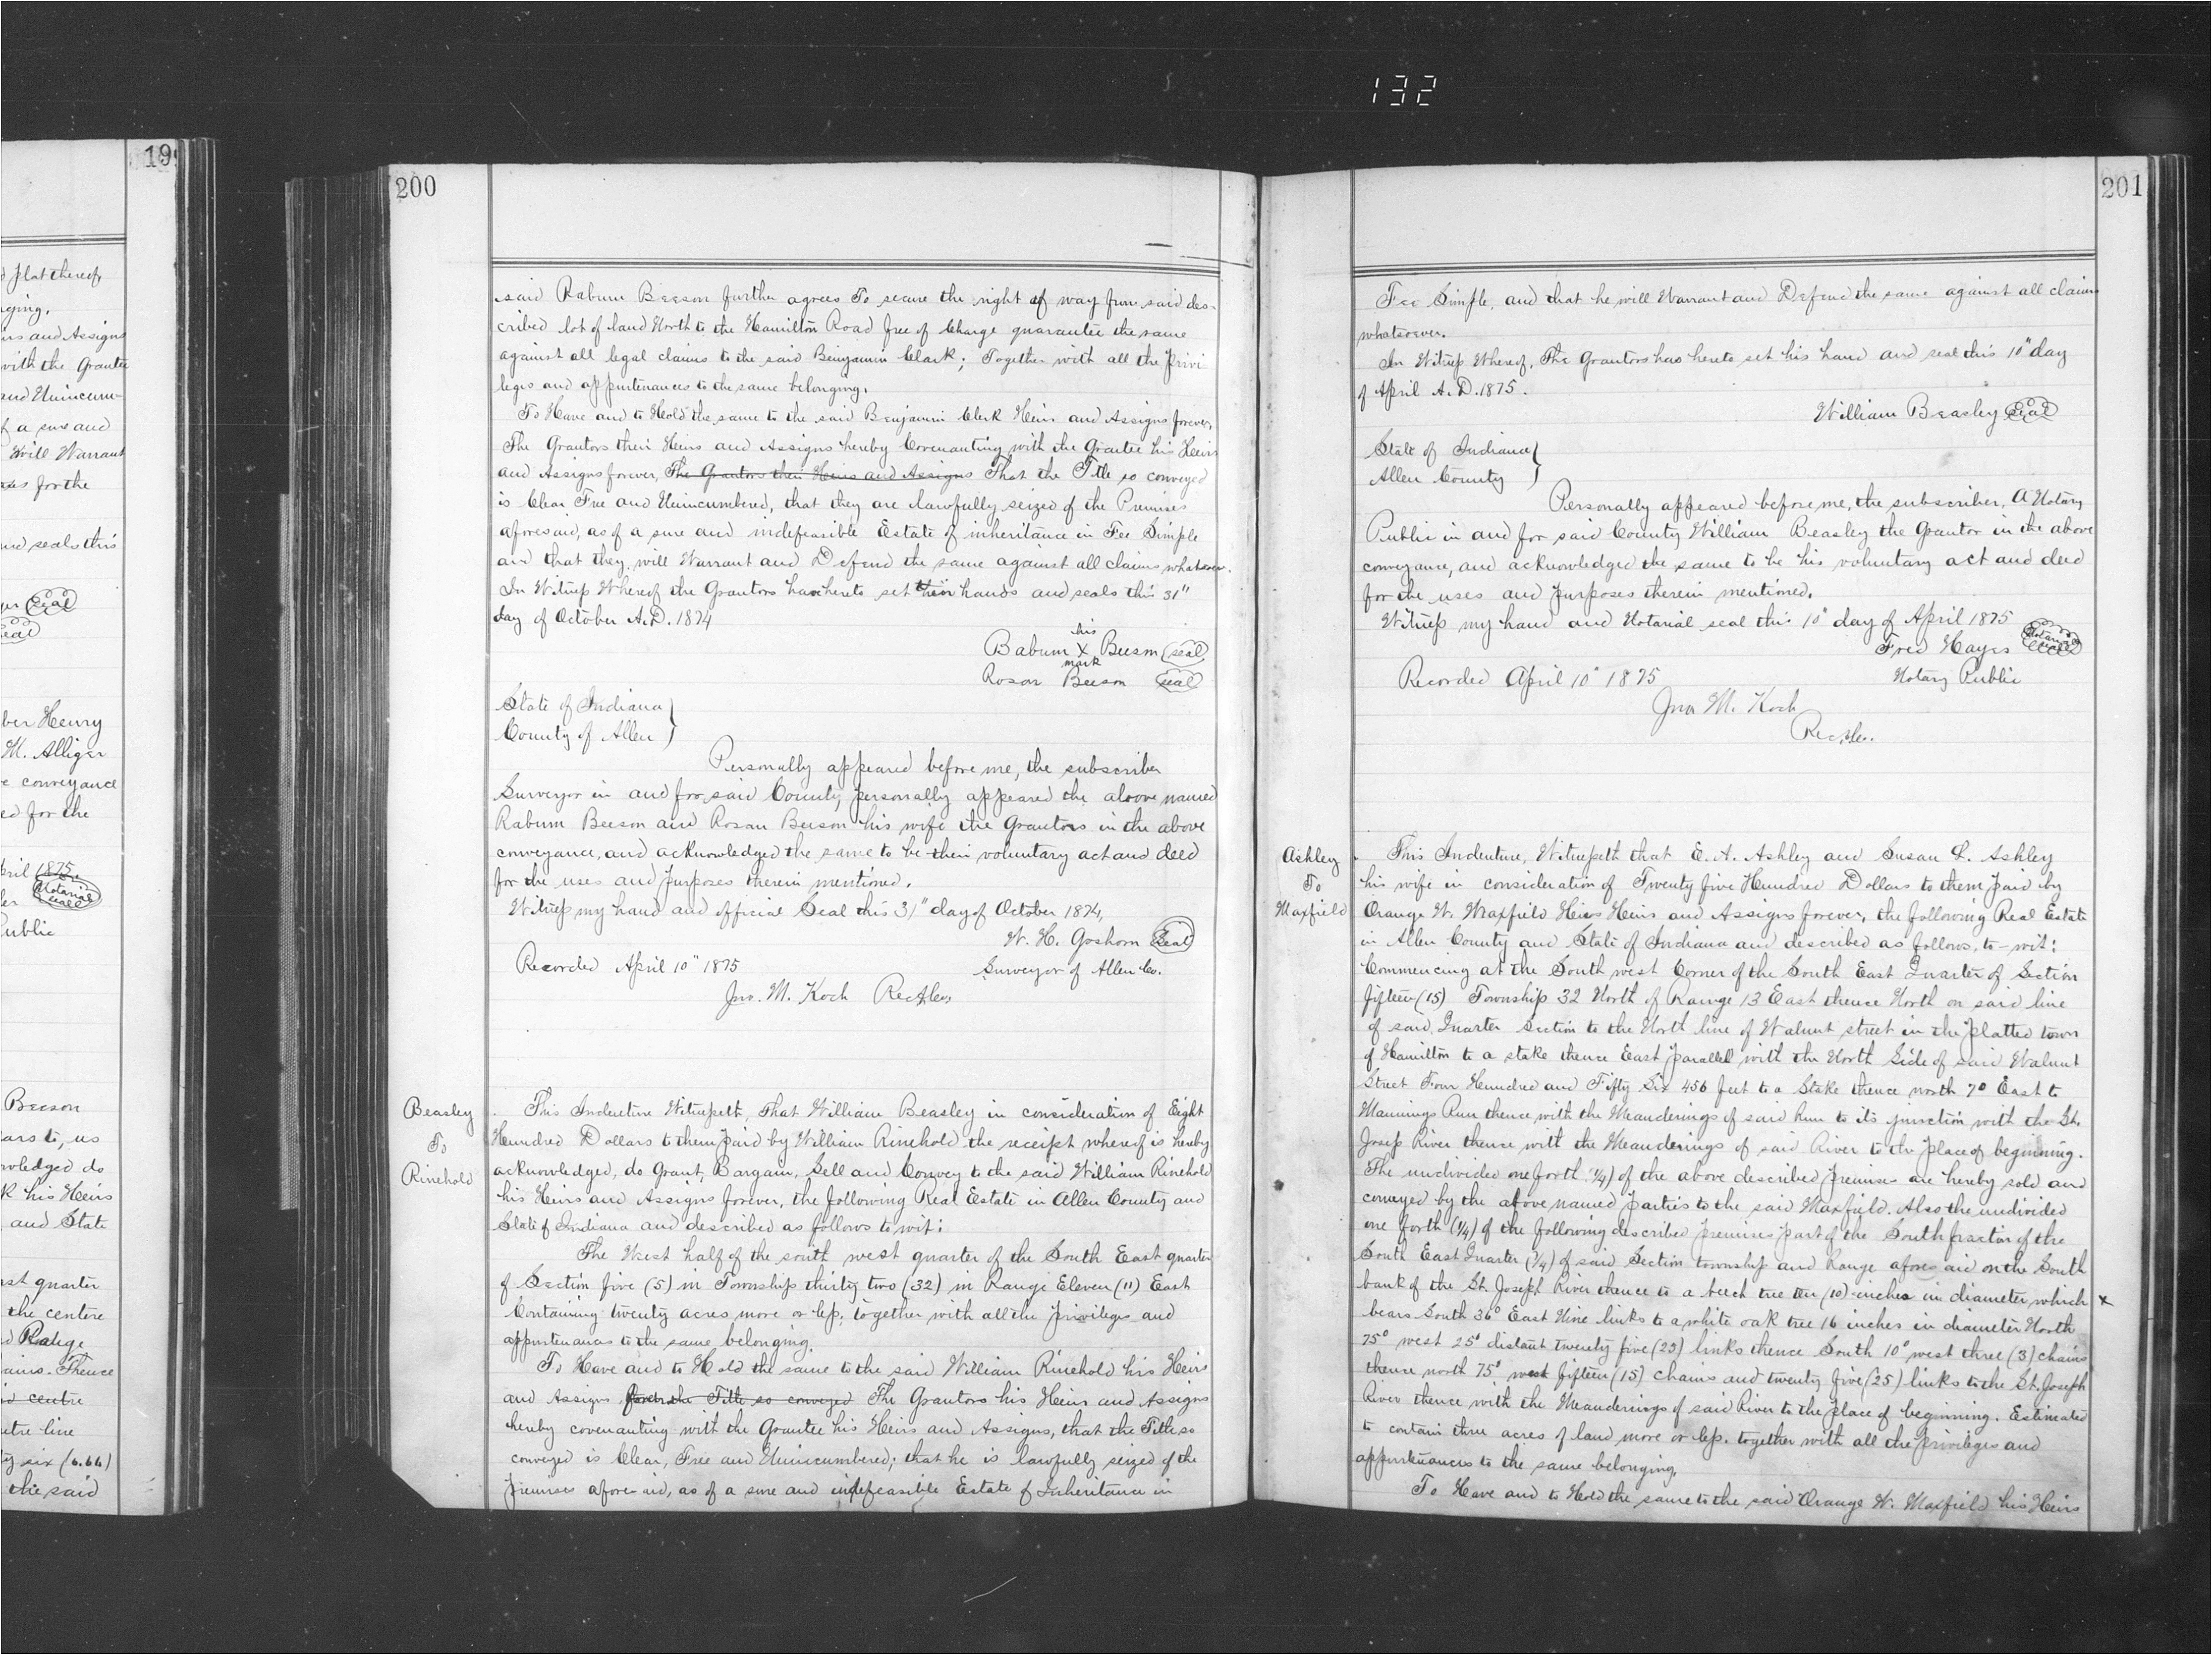 132
199
d plat thereof,
nging.
irs and Assigns
with the Grantee
and Unincum-
f a sure and
will Warrant
for the
and seals this
Seal
Seal
ber Henry
M. Alliger
e conveyance
ed for the
pril 1875.
Notarial Seal
Public
Beeson
ars to, us
owledged do
k his Heirs
and State
ast quarter
the centre
d Range
ains. Thence
id centre
ntre line
ty six (6.66)
the said
200
said Rabum Beeson further agrees To secure the right of way from said des-
cribed lot of land North to the Hamilton Road free of Charge guarantee the same
against all legal claims to the said Benjamin Clark; Together with all the Privi
leges and appurtenances to the same belonging.
To Have and to Hold the same to the said Benjamin Clerk Heirs and Assigns forever,
The Grantors their Heirs and Assigns hereby Covenanting with the Grantee his Heirs
and Assigns forever, The Grantors their Heirs and Assigns That the Title so conveyed
is Clear Free and Unincumbered, that they are lawfully seized of the Premises
aforesaid, as of a sure and indefeasible Estate of inheritance in Fee Simple
and that they will Warrant and Defend the same against all claims whatsoever.
In Witness Whereof the Grantors have hereto set their hands and seals this 31"
day of October A.D. 1874
his
Rabum X Beeson seal
mark
Rosan Beeson seal
State of Indiana }
County of Allen }
Personally appeared before me, the subscriber
Surveyor in and for said County personally appeared the above named
Rabum Beeson and Rosan Beeson his wife the Grantors in the above
conveyance, and acknowledged the same to be their voluntary act and deed
for the uses and purposes therein mentioned.
Witness my hand and official Seal this 31" day of October 1874,
W. H. Goshorn Seal
Recorded April 10" 1875 Surveyor of Allen Co.
Jno. M. Koch
Beasley
To
Rinehold
This Indenture Witnesseth, That William Beasley in consideration of Eight
Hundred Dollars to them paid by William Rinehold the receipt whereof is hereby
acknowledged, do Grant, Bargain, Sell and Convey to the said William Rinehold
his Heirs and Assigns forever, the following Real Estate in Allen County and
State of Indiana and described as follows to wit:
The West half of the south west quarter of the South East quarter
of Section five (5) in Township thirty two (32) in Range Eleven (11) East
Containing twenty acres more or less, together with all the privileges and
appurtenances to the same belonging.
To Have and to Hold the same to the said William Rinehold his Heirs
and Assigns the Title so conveyed The Grantors his Heirs and Assigns
hereby covenanting with the Grantee his Heirs and Assigns, that the Title so
conveyed is Clear, Free and Unincumbered; that he is lawfully seized of the
Premises aforesaid, as of a sure and indefeasible Estate of Inheritance in
201
Fee Simple, and that he will Warrant and Defend the same against all claims
whatsoever.
In Witness Whereof, The Grantors has hereto set his hand and seal this 10" day
of April A.D. 1875.
William Beasley Seal
State of Indiana }
Allen County }
Personally appeared before me, the subscriber, A Notary
Public in and for said County William Beasley the Grantor in the above
conveyance, and acknowledged the same to be his voluntary act and deed
for the uses and purposes therein mentioned.
Witness my hand and Notarial seal this 10" day of April 1875
Fred Hayes Notarial Seal
Recorded April 10" 1875 Notary Public
Jno M. Koch
Ashley
To
Maxfield
This Indenture, Witnesseth that E. A. Ashley and Susan L. Ashley
his wife in consideration of Twenty five Hundred Dollars to them paid by
Orange W. Maxfield Heirs Heirs and Assigns forever, the following Real Estate
in Allen County and State of Indiana and described as follows, to-wit:
Commencing at the South west Corner of the South East Quarter of Section
fifteen (15) Township 32 North of Range 13 East thence North on said line
of said Quarter Section to the North line of Walnut street in the platted town
of Hamilton to a stake thence East parallel with the North Side of said Walnut
Street Four Hundred and Fifty Six 456 feet to a Stake thence north 7° East to
Mannings Run thence with the Meanderings of said Run to its junction with the St.
Joseph River thence with the Meanderings of said River to the place of beginning.
The undivided one forth (1/4) of the above described premises are hereby sold and
conveyed by the above named parties to the said Maxfield. Also the undivided
one forth (1/4) of the following described premises part of the South fraction of the
South East Quarter (1/4) of said Section township and Range aforesaid on the South
bank of the St. Joseph River thence to a beech tree ten (10) inches in diameter which x
bears South 36° East Nine links to a white oak tree 16 inches in diameter North
75° west 25' distant twenty five (25) links thence South 10° west three (3) chains
thence north 75° west fifteen (15) chains and twenty five (25) links to the St. Joseph
River thence with the Meanderings of said River to the place of beginning. Estimated
to contain three acres of land more or less. together with all the privileges and
appurtenances to the same belonging.
To Have and to Hold the same to the said Orange W. Maxfield his Heirs